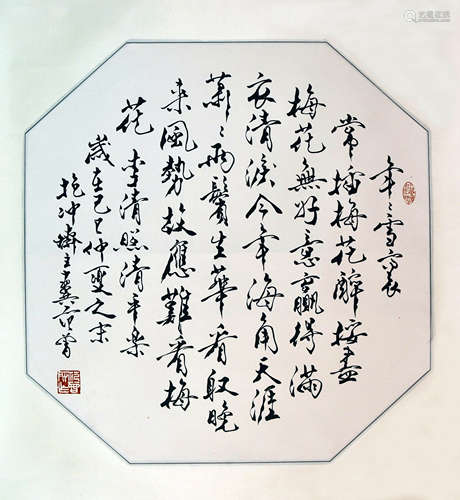 年〻雪裏
常插梅花醉挼盡
梅花無好意贏得滿
衣清淚今年海角天涯
蕭〻兩鬢生華看取晚
來風勢故應難看梅
花 李清照清平樂
歲在己巳仲夏之末
抱冲齋主